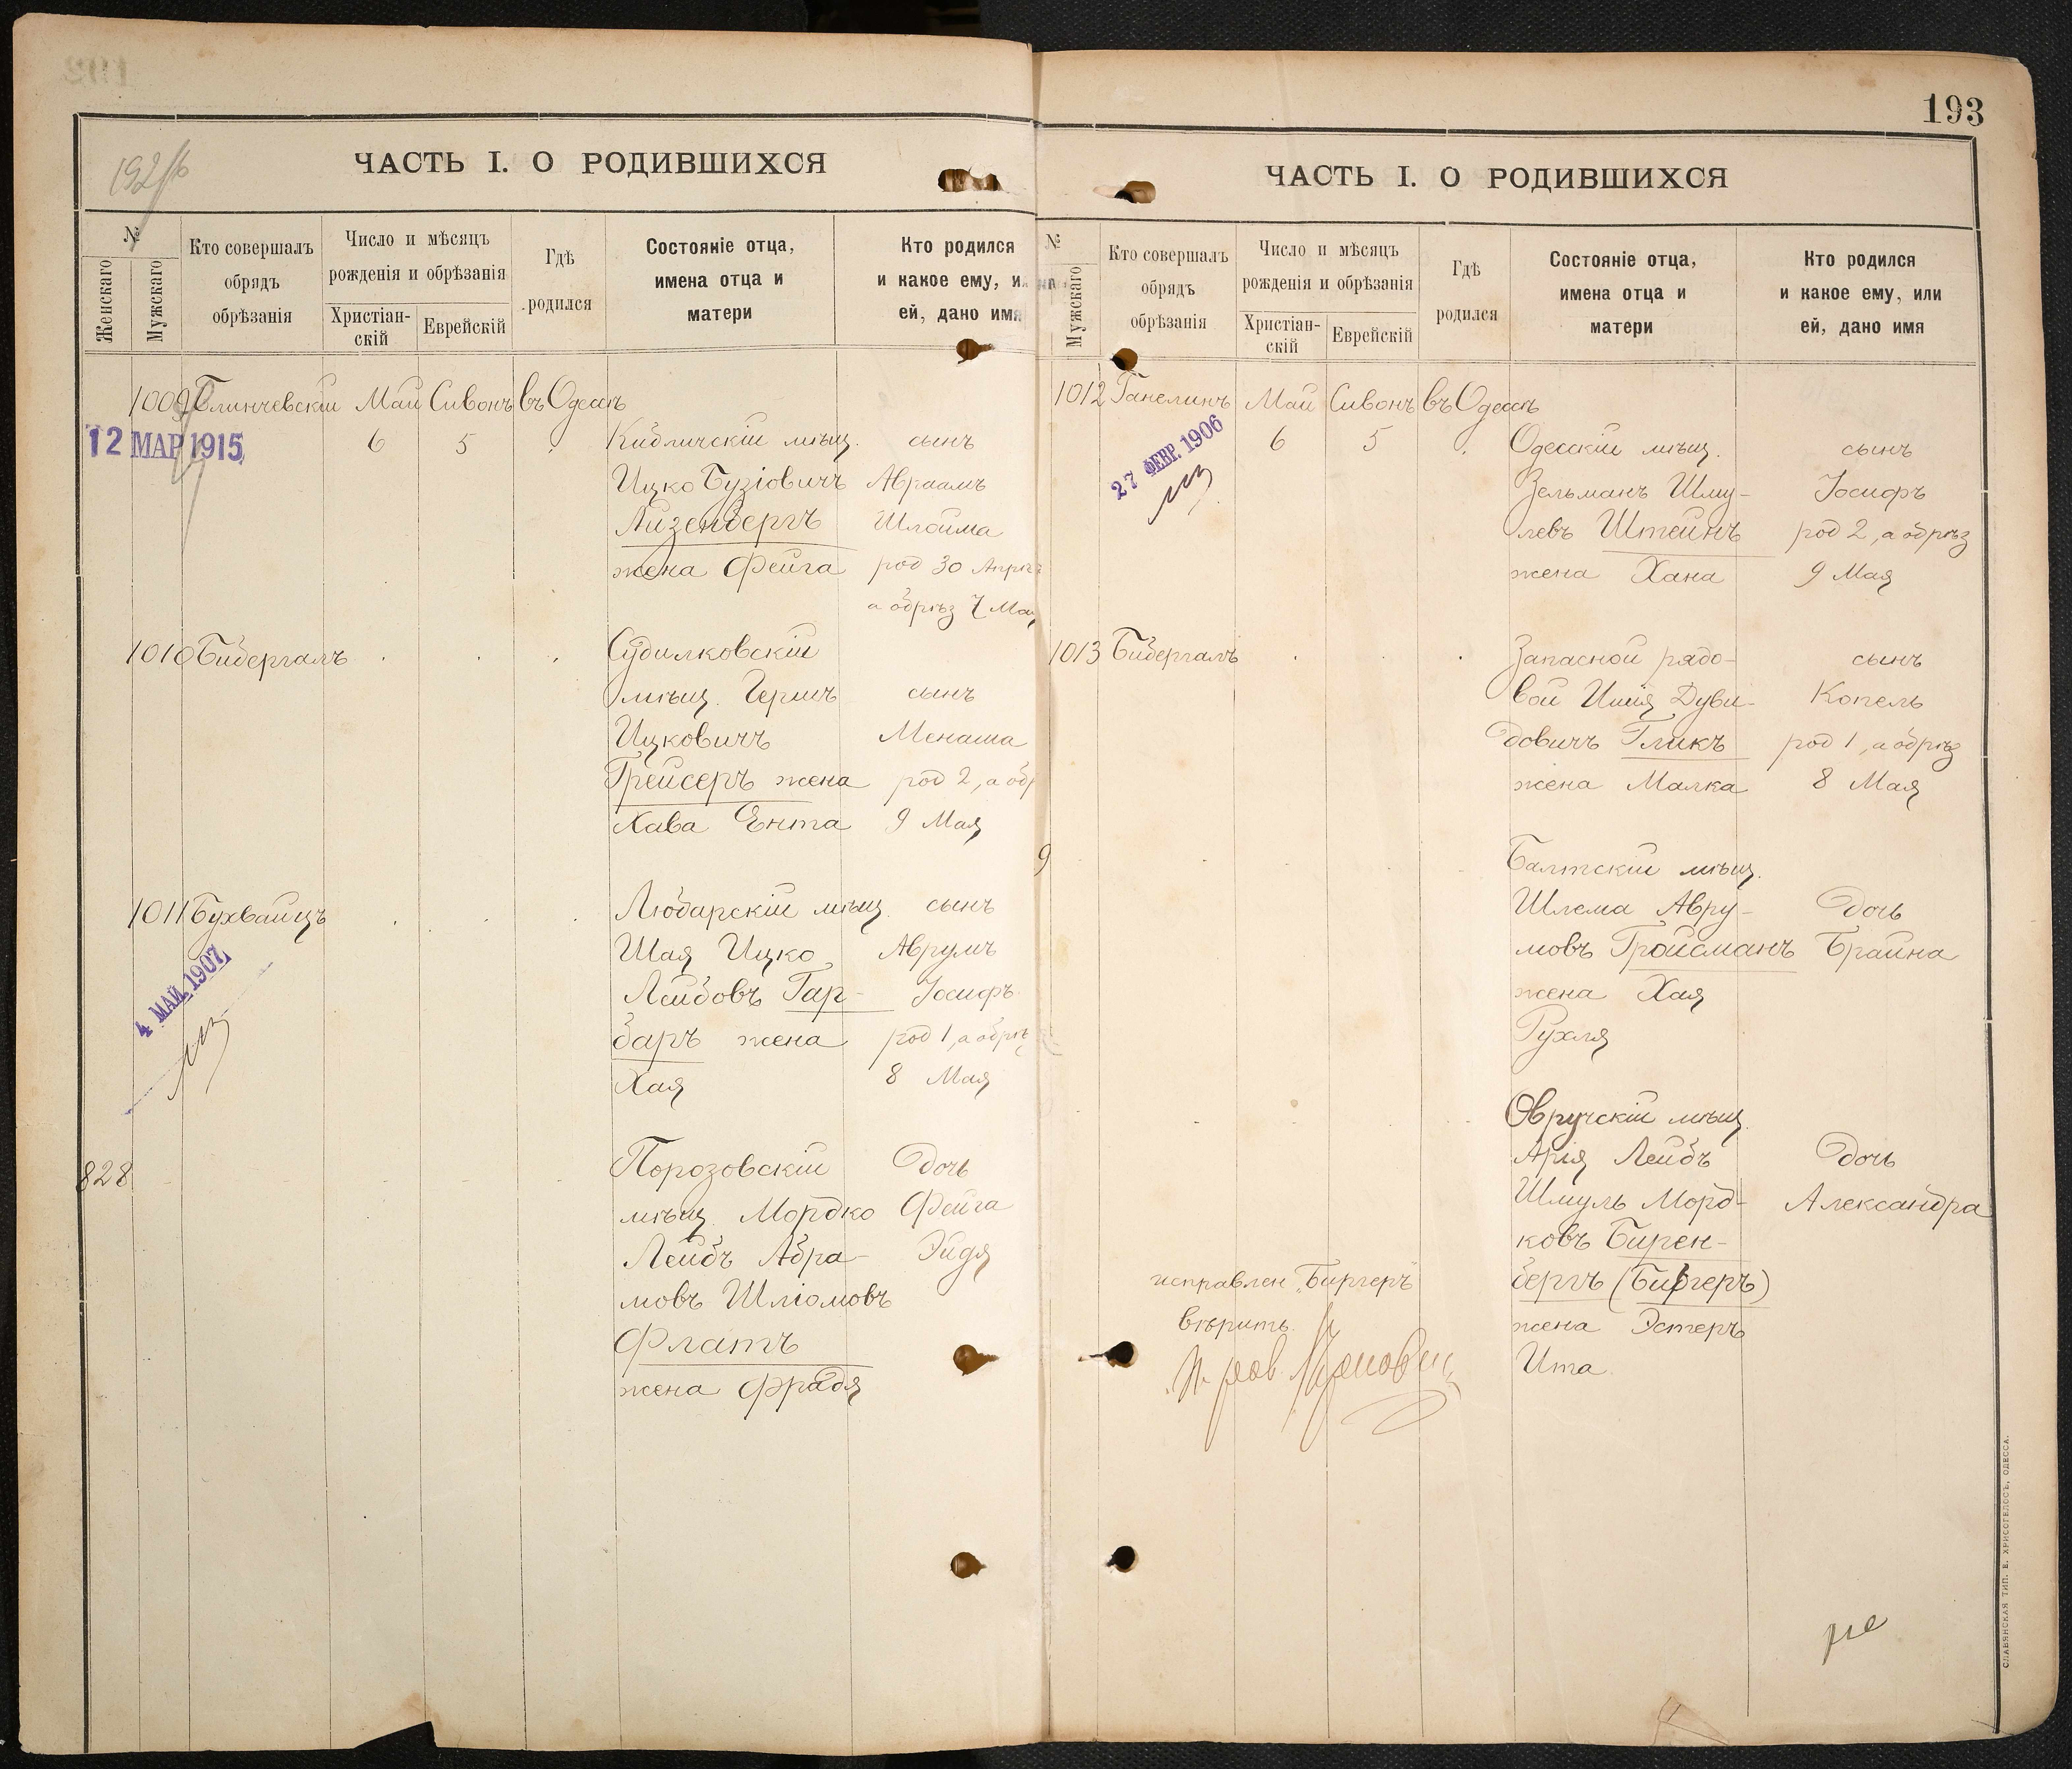 192/б
ЧАСТЬ I. О РОДИВШИХСЯ
№
Женскаго
Мужскаго
Кто совершалъ
обрядъ
обрѣзанія
Число и мѣсяцъ
рожденія и обрѣзанія
Христіан-
скій
Еврейскій
Гдѣ
родился
Состояніе отца,
имена отца и
матери
Кто родился
и какое ему, или
ей, дано имя
1009 Глинчевскій Май Сивонъ въ Одессѣ
12 МАР 1915 6 5 Кибличскій мѣщ. сынъ
Ицко Бузіовичъ Авраамъ
Айзенбергъ Шлойма
жена Фейга род 30 Апрѣ
а обрѣз 7 Мая
1010 Бибергалъ Судилковскій
мѣщ. Гершъ сынъ
Ицковичъ Менаша
Грейсеръ жена род 2, а обр
Хава Ента 9 Мая
1011 Бухвайцъ Любарскій мѣщ. сынъ
4 МАЙ 1907 Шая Ицко Аврумъ
Лейбовъ Гар- Іосифъ
баръ жена род 1, а обрѣ
Хая 8 Мая
828 Порозовскій Дочь
мѣщ. Мордко Фейга
Лейбъ Абра- Эйдя
мовъ Шліомовъ
Флатъ
жена Фрадя
193
ЧАСТЬ I. О РОДИВШИХСЯ
№
Мужскаго
Кто совершалъ
обрядъ
обрѣзанія
Число и мѣсяцъ
рожденія и обрѣзанія
Христіан-
скій
Еврейскій
Гдѣ
родился
Состояніе отца,
имена отца и
матери
Кто родился
и какое ему, или
ей, дано имя
1012 Ганелинъ Май Сивонъ въ Одессѣ
27 ФЕВР. 1906 6 5 Одесскій мѣщ. сынъ
Зельманъ Шму- Іосифъ
левъ Штейнъ род 2, а обрѣз
жена Хана 9 Мая
1013 Бибергалъ Запасной рядо- сынъ
вой Ишія Дуви- Копель
довичъ Гликъ род 1, а обрѣз
жена Малка 8 Мая
9 Балтскій мѣщ.
Шлема Авру- Дочь
мовъ Гройсманъ Брайна
жена Хая
Рухля
Овручскій мѣщ.
Арія Лейбъ Дочь
Шмуль Морд- Александра
ковъ Бирен-
исправлен „Биргеръ" бергъ (Биргеръ)
вѣрить. жена Эстеръ
Ита.
СЛАВЯНСКАЯ ТИП. Е. ХРИСОГЕЛОСЪ, ОДЕССА.